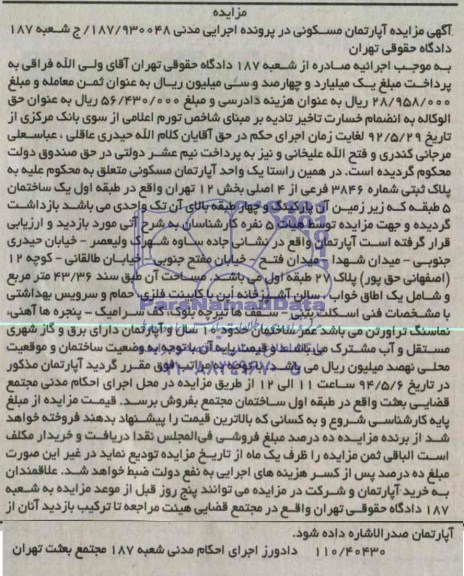 مزایده
آگهی مزایده آپارتمان مسکونی در پرونده اجرایی مدنی ۱۸۷/۹۳۰۰۴۸/ج شعبه ۱۸۷
دادگاه حقوقی تهران
به موجب اجرائیه صادره از شعبه ۱۸۷ دادگاه حقوقی تهران آقای ولی الله فراقی به
پرداخت مبلغ یک میلیارد و چهارصد و سی میلیون ریال به عنوان ثمن معامله و مبلغ
۲۸/۹۵۸/۰۰۰ ریال به عنوان هزینه دادرسی و مبلغ ۵۶/۴۳۰/۰۰۰ ریال به عنوان حق
الوکاله به انضمام خسارت تاخیر تادیه بر مبنای شاخص تورم اعلامی از سوی بانک مرکزی از
تاریخ ۹۲/۵/۲۹ لغایت زمان اجرای حکم در حق آقایان کلام الله حیدری عاقلی ، عباسعلی
مرجانی کندری و فتح الله علیخانی و نیز به پرداخت نیم عشر دولتی در حق صندوق دولت
محکوم گردیده است. در همین راستا یک واحد آپارتمان مسکونی متعلق به محکوم علیه به
پلاک ثبتی شماره ۳۸۴۶ فرعی از ۴ اصلی بخش ۱۲ تهران واقع در طبقه اول یک ساختمان
۵ طبقه که زیر زمین آن پارکینگ و چهار طبقه بالای آن تک واحدی می باشد بازداشت
گردیده و جهت مزایده توسط هیات ۵ نفره کارشناسان به شرح آتی مورد بازدید و ارزیابی
قرار گرفته است آپارتمان واقع در نشانی جاده ساوه شهرک ولیعصر - خیابان حیدری
جنوبی - میدان شهدا - میدان فتح - خیابان مفتح جنوبی - خیابان طالقانی - کوچه ۱۲
(اصفهانی حق پور) پلاک ۲۷ طبقه اول می باشد. مساحت آن طبق سند ۴۳/۳۶ متر مربع
و شامل یک اطاق خواب ، سالن آشپزخانه اپن با کابینت فلزی حمام و سرویس بهداشتی
با مشخصات فنی اسکلت بتنی - سقف ها تیرچه بلوک، کف سرامیک - پنجره ها آهنی،
نماسنگ تراورتن می باشد عمر ساختمان حدود ۱۰ سال و آپارتمان دارای برق و گاز شهری
مستقل و آب مشترک می باشد و قیمت پایه آن با توجه به وضعیت ساختمان و موقعیت
محلی نهصد میلیون ریال می باشد. با توجه به مراتب فوق مقرر گردید آپارتمان مذکور
در تاریخ ۹۴/۵/۶ ساعت ۱۱ الی ۱۲ از طریق مزایده در محل اجرای احکام مدنی مجتمع
قضایی بعثت واقع در طبقه اول ساختمان مجتمع بفروش برسد. قیمت مزایده از مبلغ
پایه کارشناسی شروع و به کسانی که بالاترین قیمت را پیشنهاد بدهند فروخته خواهد
شد از برنده مزایده ده درصد مبلغ فروشی فی‌المجلس نقدا دریافت و خریدار مکلف
است الباقی ثمن مزایده را ظرف یک ماه از تاریخ مزایده تودیع نماید در غیر این صورت
مبلغ ده درصد پس از کسر هزینه های اجرایی به نفع دولت ضبط خواهد شد. علاقمندان
به خرید آپارتمان و شرکت در مزایده می توانند پنج روز قبل از موعد مزایده به شعبه
۱۸۷ دادگاه حقوقی تهران واقع در مجتمع قضایی هیئت مراجعه تا ترکیب بازدید آنان از
آپارتمان صدرالاشاره داده شود.
۱۱۰/۴۰۴۳۰ دادورز اجرای احکام مدنی شعبه ۱۸۷ مجتمع بعثت تهران
ParsNamadData